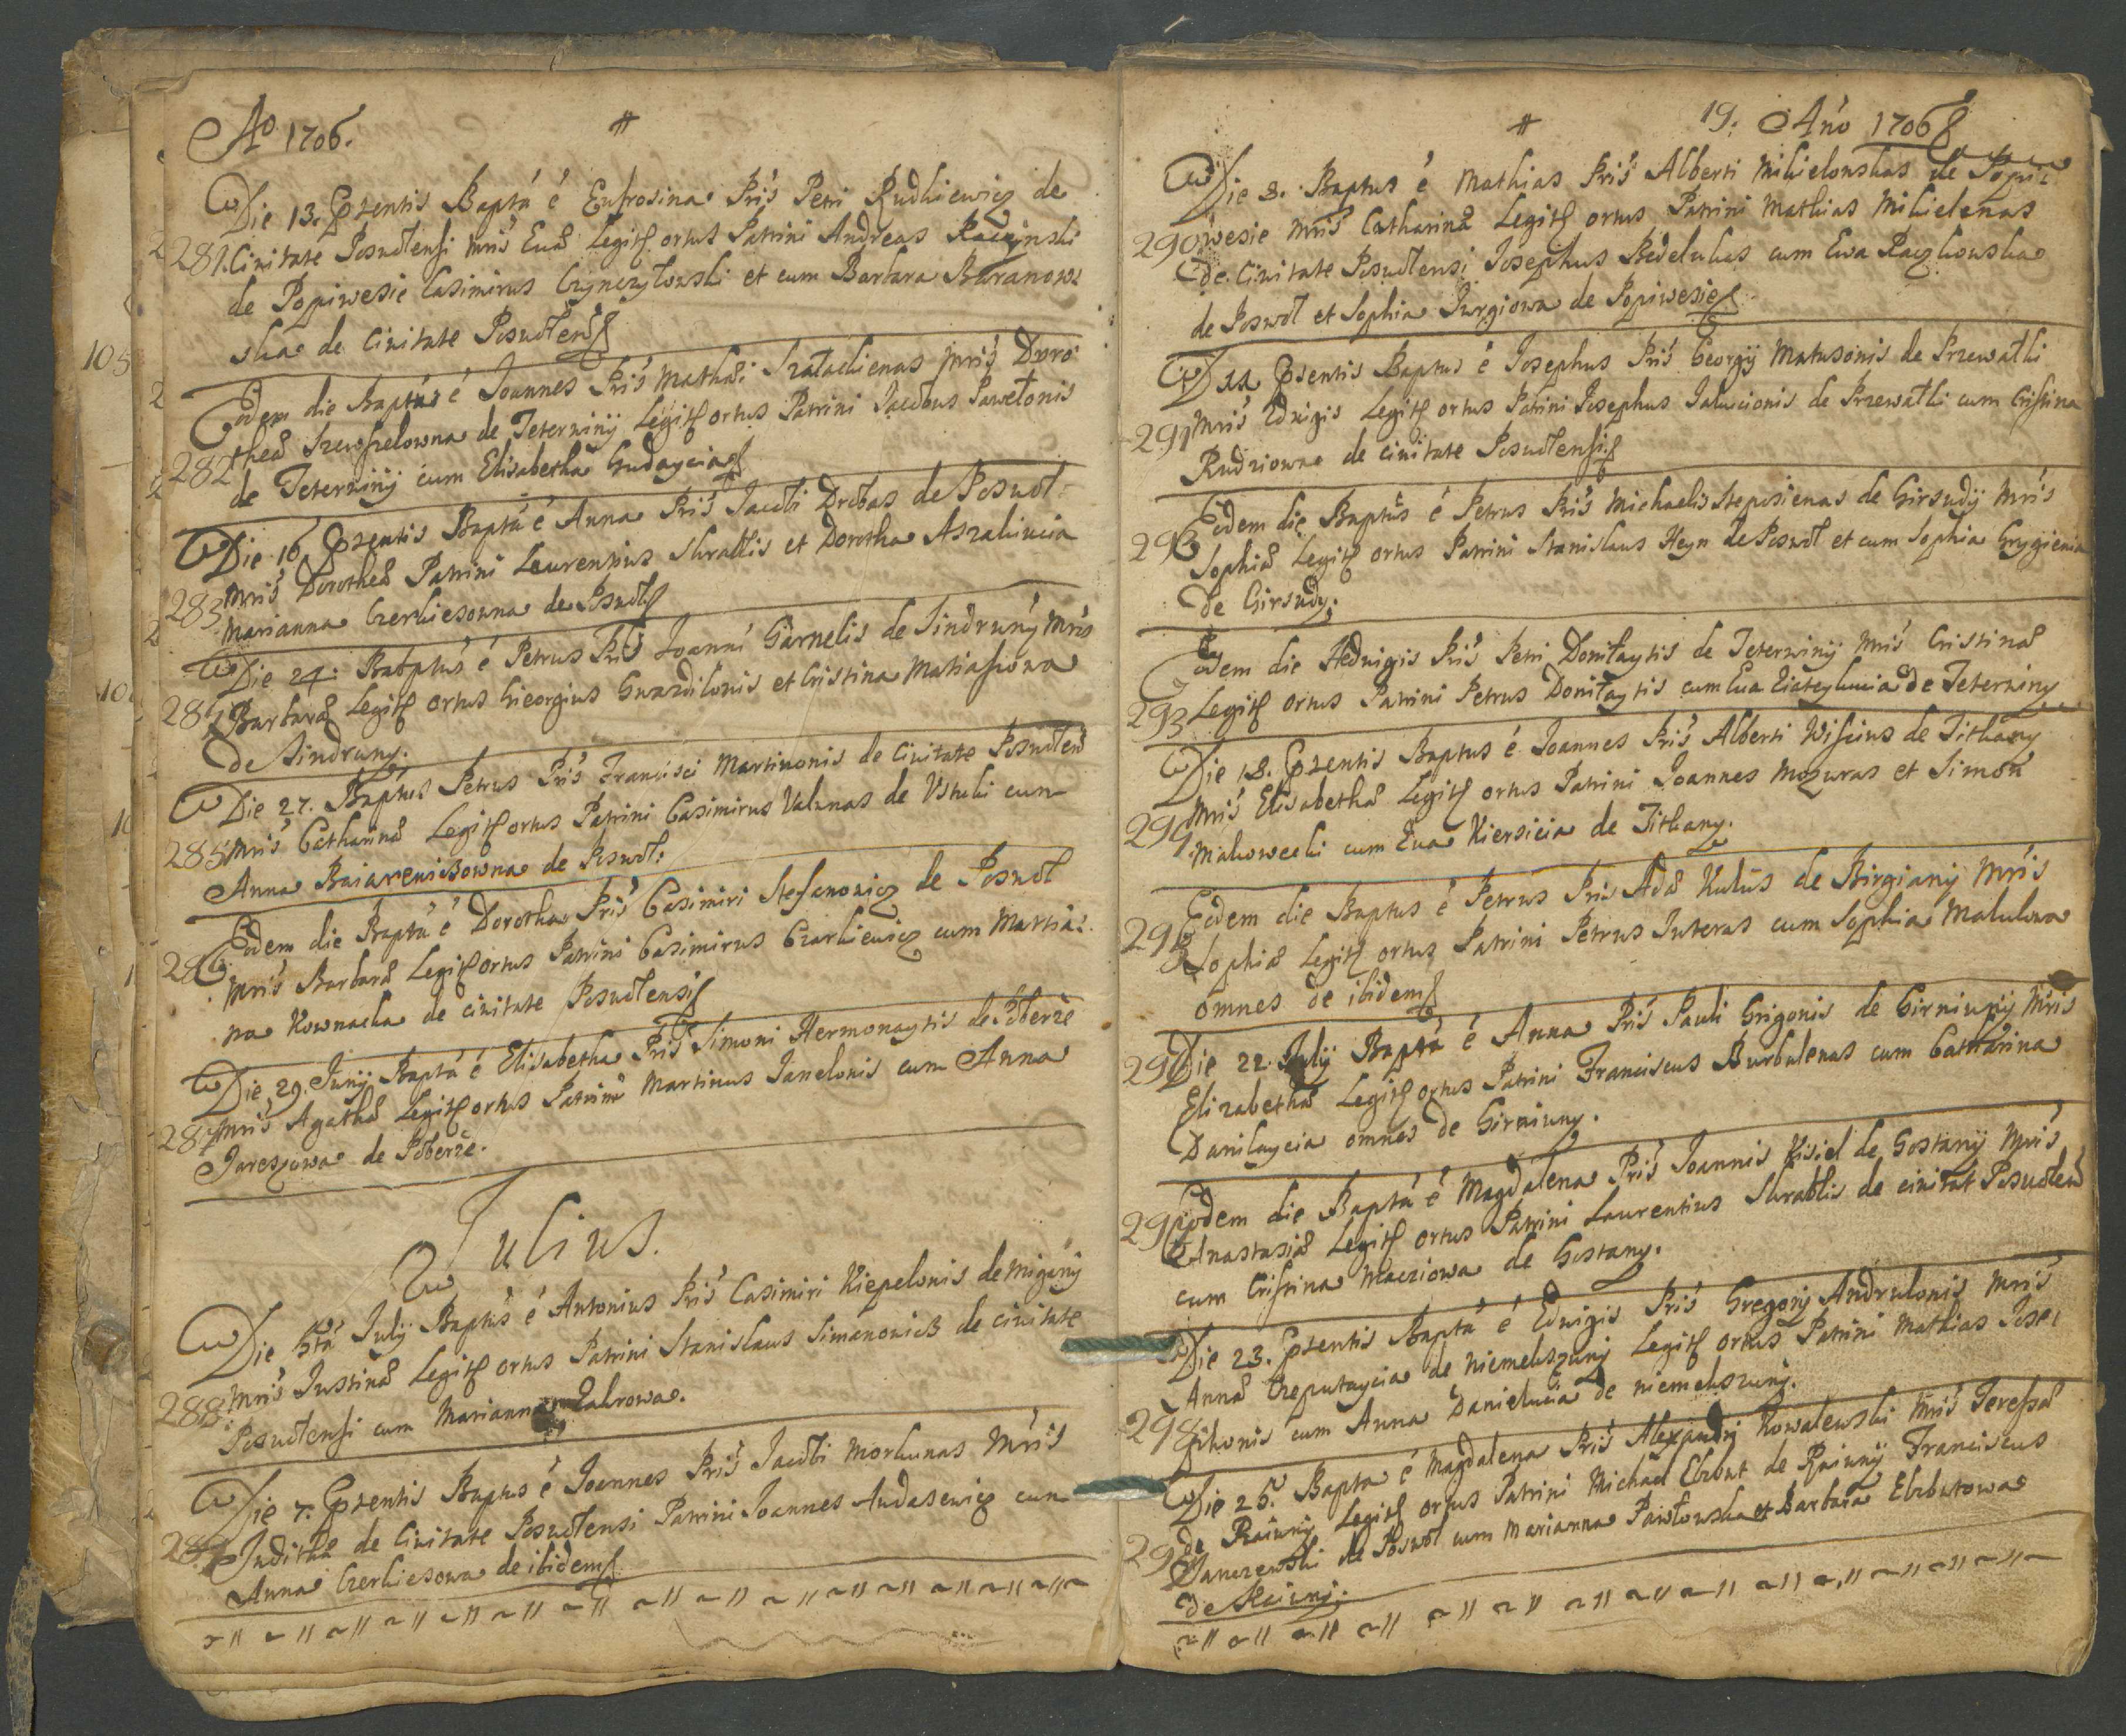 Ao 1706.
Die 13. Præsentis Baptá é Eufrosina Pris Petri Rudkiewicz de
281. Civitate Posvolensi Mris Evæ Legit ortus Patrini Andreas Raczynski
de Popiwesie Casimirus Czynczyłowski et cum Barbara Baranow:
ska de Civitate Posvolens
Eodem die Baptus é Joannes Pris Mathæi Szałachienas Mris Doro:
282 theæ de Teterwiny Legit ortus Patrini Jacobus Pawełonis
de Teterwiny cum Elisabetha Gudaycia
Die 16 Præsentis Baptá é Anna Pris Jacobi Drobas de Poswol
283 Mris Dorotheæ Patrini Laurentius Skrablis et Dorotha Aszakiucia
Marianna Czerkiesowna de Poswol
Die 24: Babptus é Petrus Pris Joanni Garnelis de Sindruny Mris
284 Barbaræ Legit ortus Georgius Gwazdilonis et Cristina Matiaszowa
de Sindruny.
Die 27. Baptus Petrus Pris Francisci Martinonis de Civitate Posvolens
285 Mris Catharinæ Legit ortus Patrini Casimirus Valunas de Vstuki cum
Anna de Poswol:
Eodem die Baptá é Dorotha Pris Casimiri Stefanowicz de Poswol
286 Mris Barbaræ Legit ortus Patrini Casimirus Czarkiewicz cum Maria:
na Kownacka de civitate Posvolensi
Die 29. Juny Baptá é Elisabetha Pris Simoni Hermonaytis de Poberże
287 Mris Agathæ Legit ortus Patrini Martinus Janelonis cum Anna
Jareszowa de Poberże.
Julius.
Die 5ta July Baptus é Antonius Pris Casimiri Kiepelonis de Migany
288 Mris Justinæ Legit ortus Patrini Stanislaus Simanowicz de civitate
Posvolensi cum Marianna Zakrowa.
Die 7. Præsentis Baptus é Joannes Pris Jacobi Morkunas Mris
289 Judithæ de Civitate Posvolensi Patrini Joannes Audasewicz cum
Anna Czerkiesowa de ibidem
19. Ano 1706
Die 8. Baptus é Mathias Pris Alberti Mikielonskas de Popi:
290 wesie Mris Catharinæ Legit ortus Patrini Mathias Mikielenas
de Civitate Posvolensi Josephus Bedelukas cum Ewa Raczkowska
de Poswol et Sophia Jurgiowa de Popiwesie
D 11 Præsentis Baptus é Josephus Pris Georgij Matusonis de Przewałki
291 Mris Edvigis Legit ortus Patrini Josephus Jakucionis de Przewałki cum Cristina
Rudziowa de civitate Posvolensi
Eodem die Baptus é Petrus Pris Michaelis Steposienas de Girsudy Mris
293 Sophiæ Legit ortus Patrini Stanislaus Heyn de Poswol et cum Sophia Grygienia
de Girsudy.
Eodem die Hedvigis Pris Petri Doniłaytis de Teterwiny Mris Cristinæ
293 Legit ortus Patrini Petrus Doniłaytis cum Eva de Teterwiny
Die 18. Præsentis Baptus é Joannes Pris Alberti Wiszius de Titkany
294 Mris Elisabethæ Legit ortus Patrini Joannes Mozuras et Simon
Makowecki cum Eva Kiersicia de Titkany.
Eodem die Baptus é Petrus Pris Adæ Kulus de Birgiany Mris
295 Sophiæ Legit ortus Patrini Petrus Puteras cum Sophia Makulowa
omnes de ibidem
Die 22 July Baptá é Anna Pris Pauli Grigonis de Girniuny Mris
296 Elizabethæ Legit ortus Patrini Franciscus Burbulenas cum Catharina
Danilaycia omnes de Girniuny.
Eodem die Baptá é Magdalena Pris Joannis Kisiel de Gostany Mris
297 Anastasiæ Legit ortus Patrini Laurentius Skrablis de civitat Posvolens
cum Cristina Macziowa de Gostany.
Die 23. Præsentis Baptá é Edvigis Pris Gregorij Andrulonis Mris
Annæ Czeputaycia de Niemekszuny Legit ortus Patrini Mathias Jose:
298 phonis cum Anna Danielucia de niemekszuny.
Die 25. Bapta é Magdalena Pris Alexandrj Kowalewski Mris Teressæ
de Raiuny Legit ortus Patrini Michael Elzbut de Raiuny Franciscus
299 Janczewski de Poswol cum Marianna Pawłowska et Barbara Elzbutowa
de Raiuny.